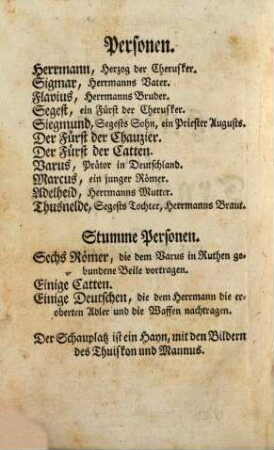 Personen.
Herrmann, Herzog der Cherusker.
Sigmar, Herrmanns Vater.
Flavius, Herrmanns Bruder.
Segest, ein Fürst der Cherusker.
Siegmund, Segests Sohn, ein Priester Augusts.
Der Fürst der Chauzier.
Der Fürst der Catten.
Varus, Prätor in Deutschland.
Marcus, ein junger Römer.
Adelheid, Herrmanns Mutter.
Thusnelde, Segests Tochter, Herrmanns Braut.
Stumme Personen.
Sechs Römer, die dem Varus in Ruthen ge-
bundene Beile vortragen.
Einige Catten.
Einige Deutschen, die dem Herrmann die er-
oberten Adler und die Waffen nachtragen.
Der Schauplatz ist ein Hayn, mit den Bildern
des Thuiskon und Mannus.